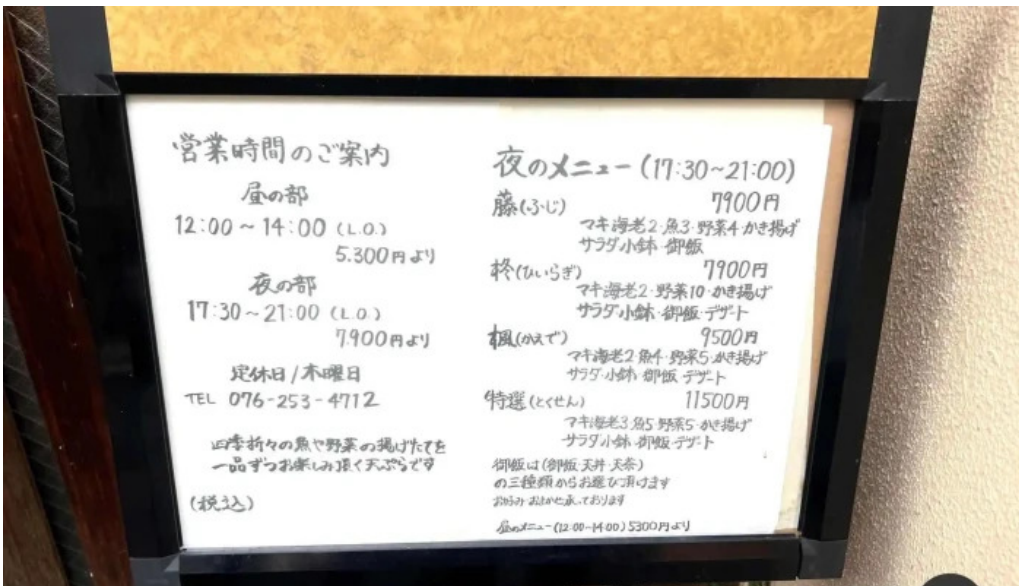 営業時間のご案内
昼の部
12:00～14:00 (L.O.)
5.300円より
夜の部
17:30～21:00 (L.O.)
7.900円より
定休日/木曜日
TEL 076-253-4712
四季折々の魚や野菜の揚げたてを
一品ずつお楽しみ頂く天ぷらです
(税込)
夜のメニュー(17:30～21:00)
藤(ふじ) 7900円
マキ海老2・魚3・野菜4・かき揚げ
サラダ小鉢・御飯
柊(ひいらぎ) 7900円
マキ海老2・野菜10・かき揚げ
サラダ・小鉢・御飯・デザート
楓(かえで) 9500円
マキ海老2・魚4・野菜5・かき揚げ
サラダ・小鉢・御飯・デザート
特選(とくせん) 11500円
マキ海老3・魚5・野菜5・かき揚げ
サラダ・小鉢・御飯・デザート
御飯は(御飯・天丼・天茶)
の三種類からお選び頂けます
承っております
昼のメニュー(12:00~14:00) 5300円より